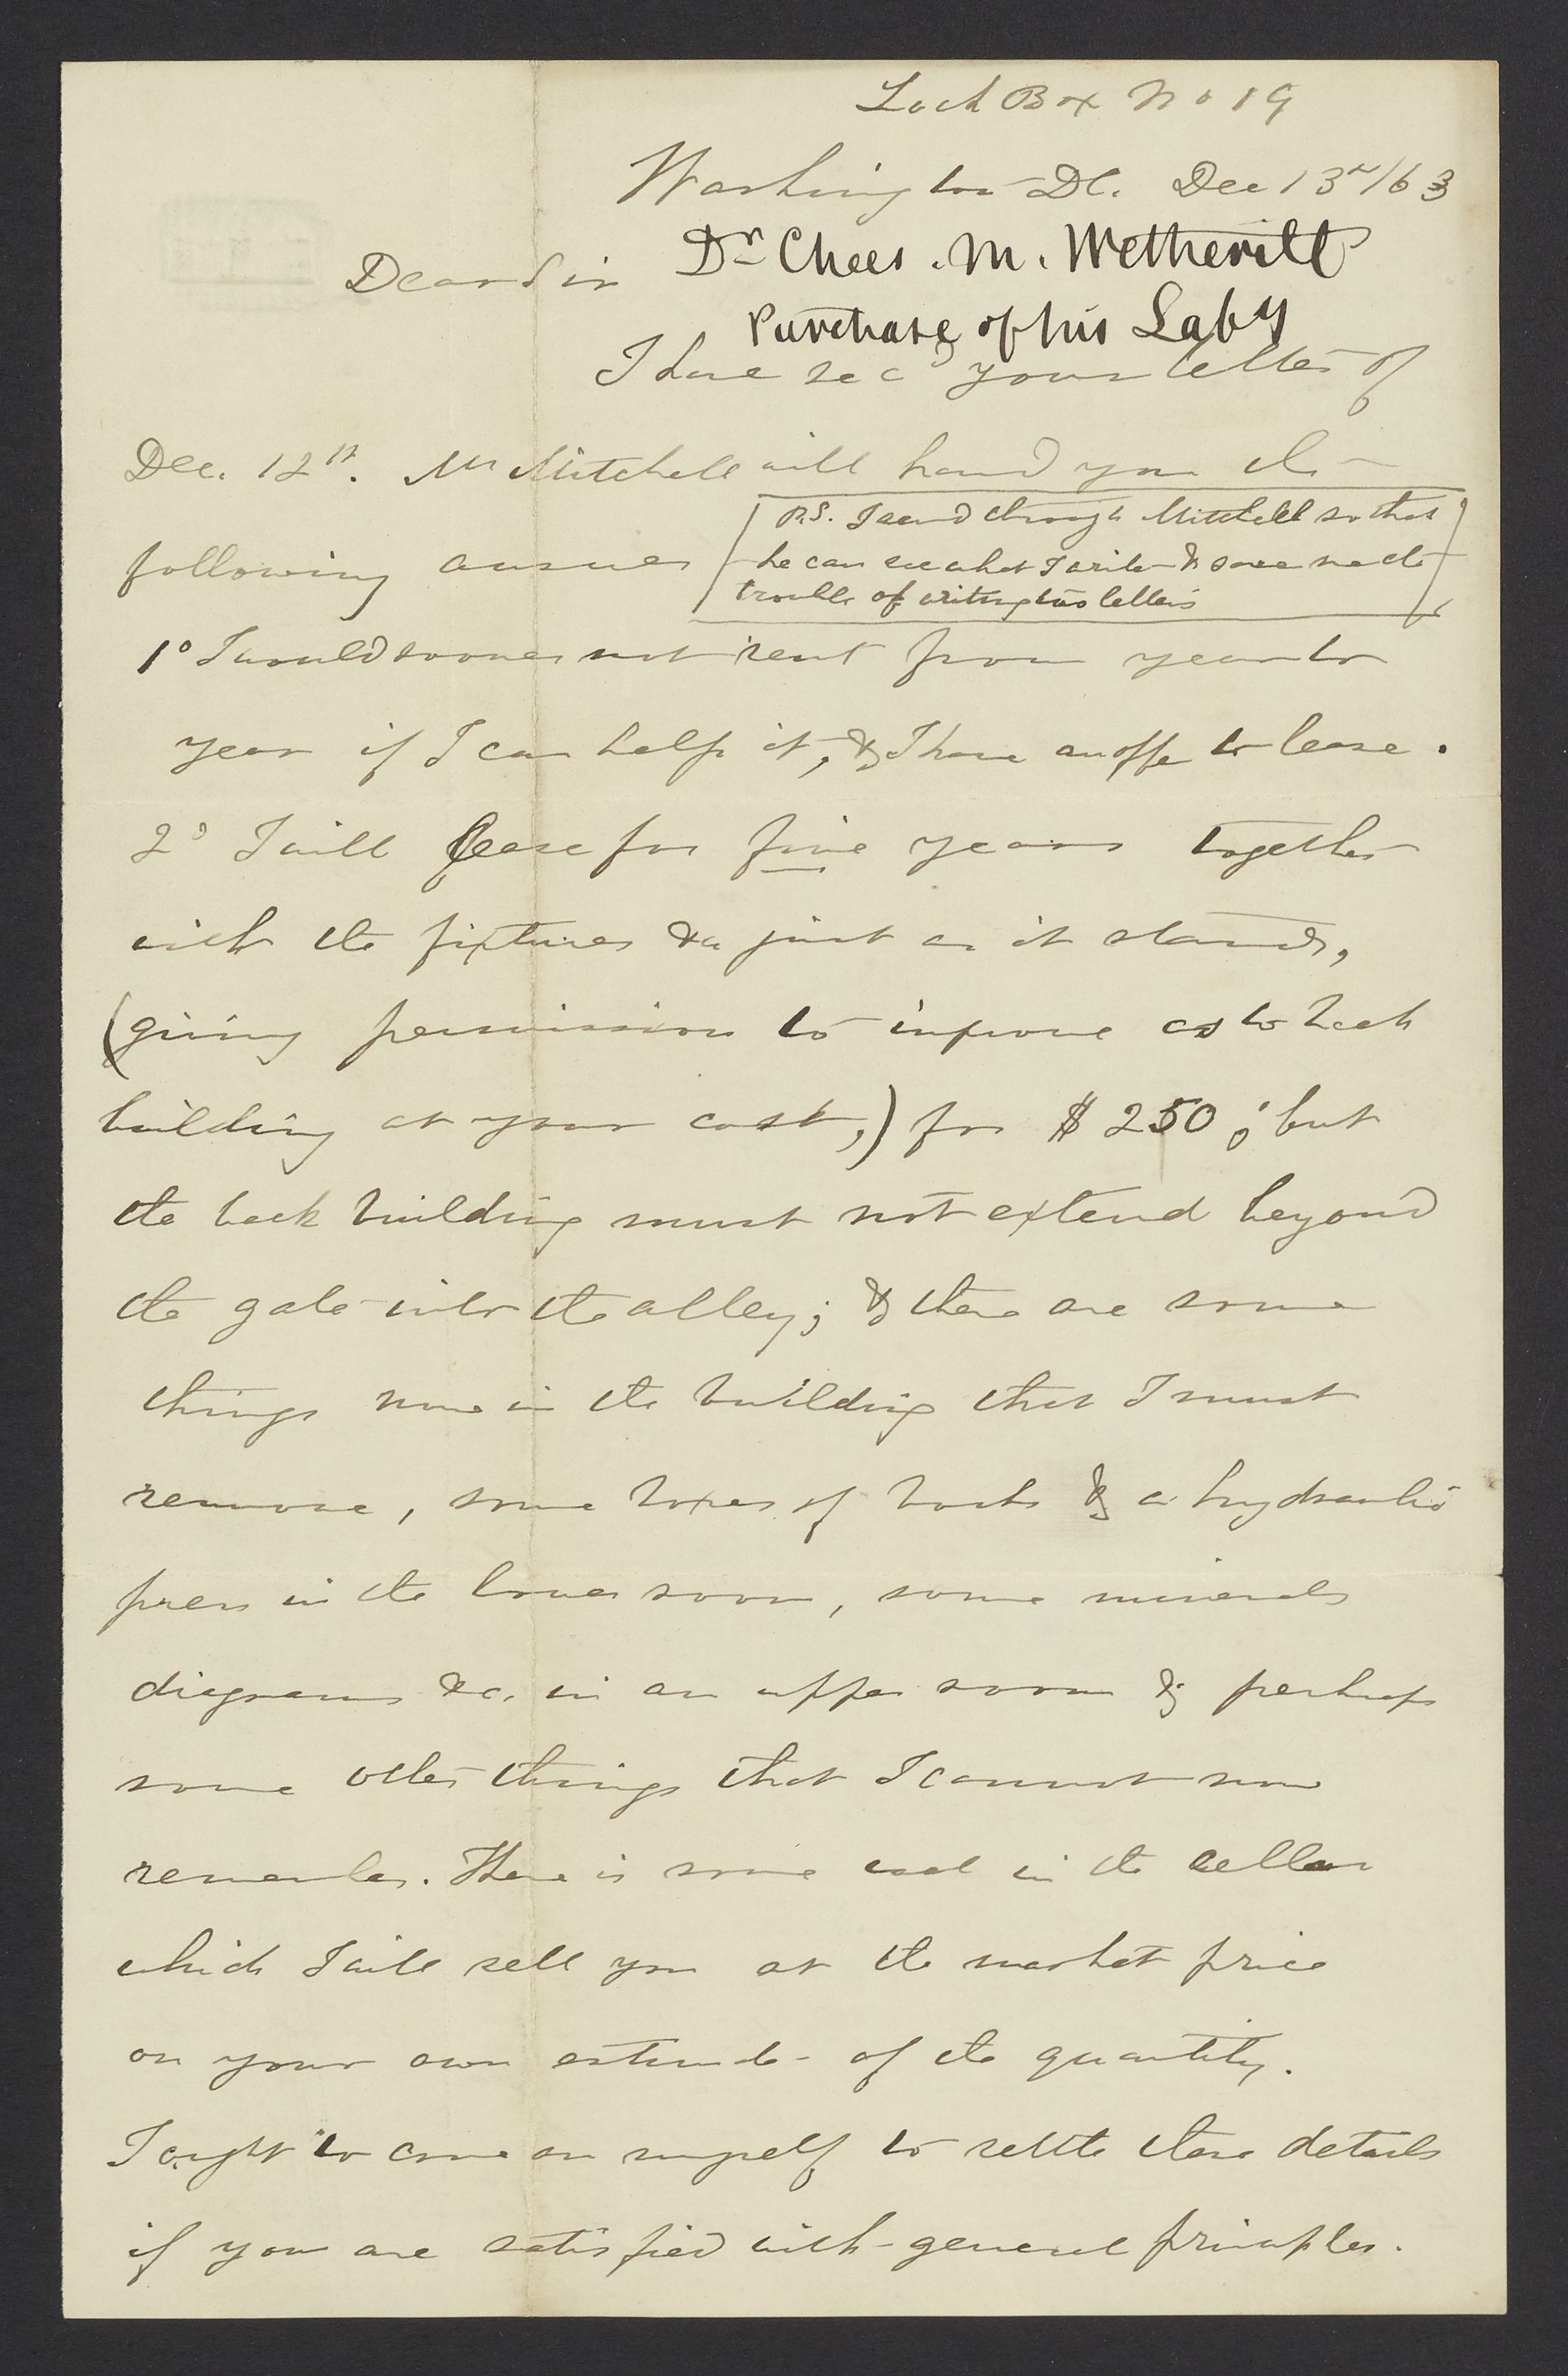 Lock Box No 19
Washington DC. Dec 13th/63
Dear Sir
Dr Chas. M. Wetherill
Purchase of his Laby
I have recd your letter of
Dec. 12th. Mr Mitchell will hand you the
following answer
P.S. I send through Mitchell so that
he can see what I write & save me the
trouble of writing two letters
1o I would sooner not rent from year to
year if I can help it, & I have an offer to lease.
2o I will lease for five years together
with the fixtures &c just as it stands,
(giving permission to improve as to back
building at your cost,) for $250; but
the back building must not extend beyond
the gate into the alley; & there are some
things now in the building that I must
remove, some boxes of books & a hydraulic
press in the lower room, some minerals
diagrams &c. in an upper room & perhaps
some other things that I cannot now
remember. There is some coal in the cellar
which I will sell you at the market price
on your own estimate of the quantity.
I ought to come on myself to settle these details
if you are satisfied with general principles.